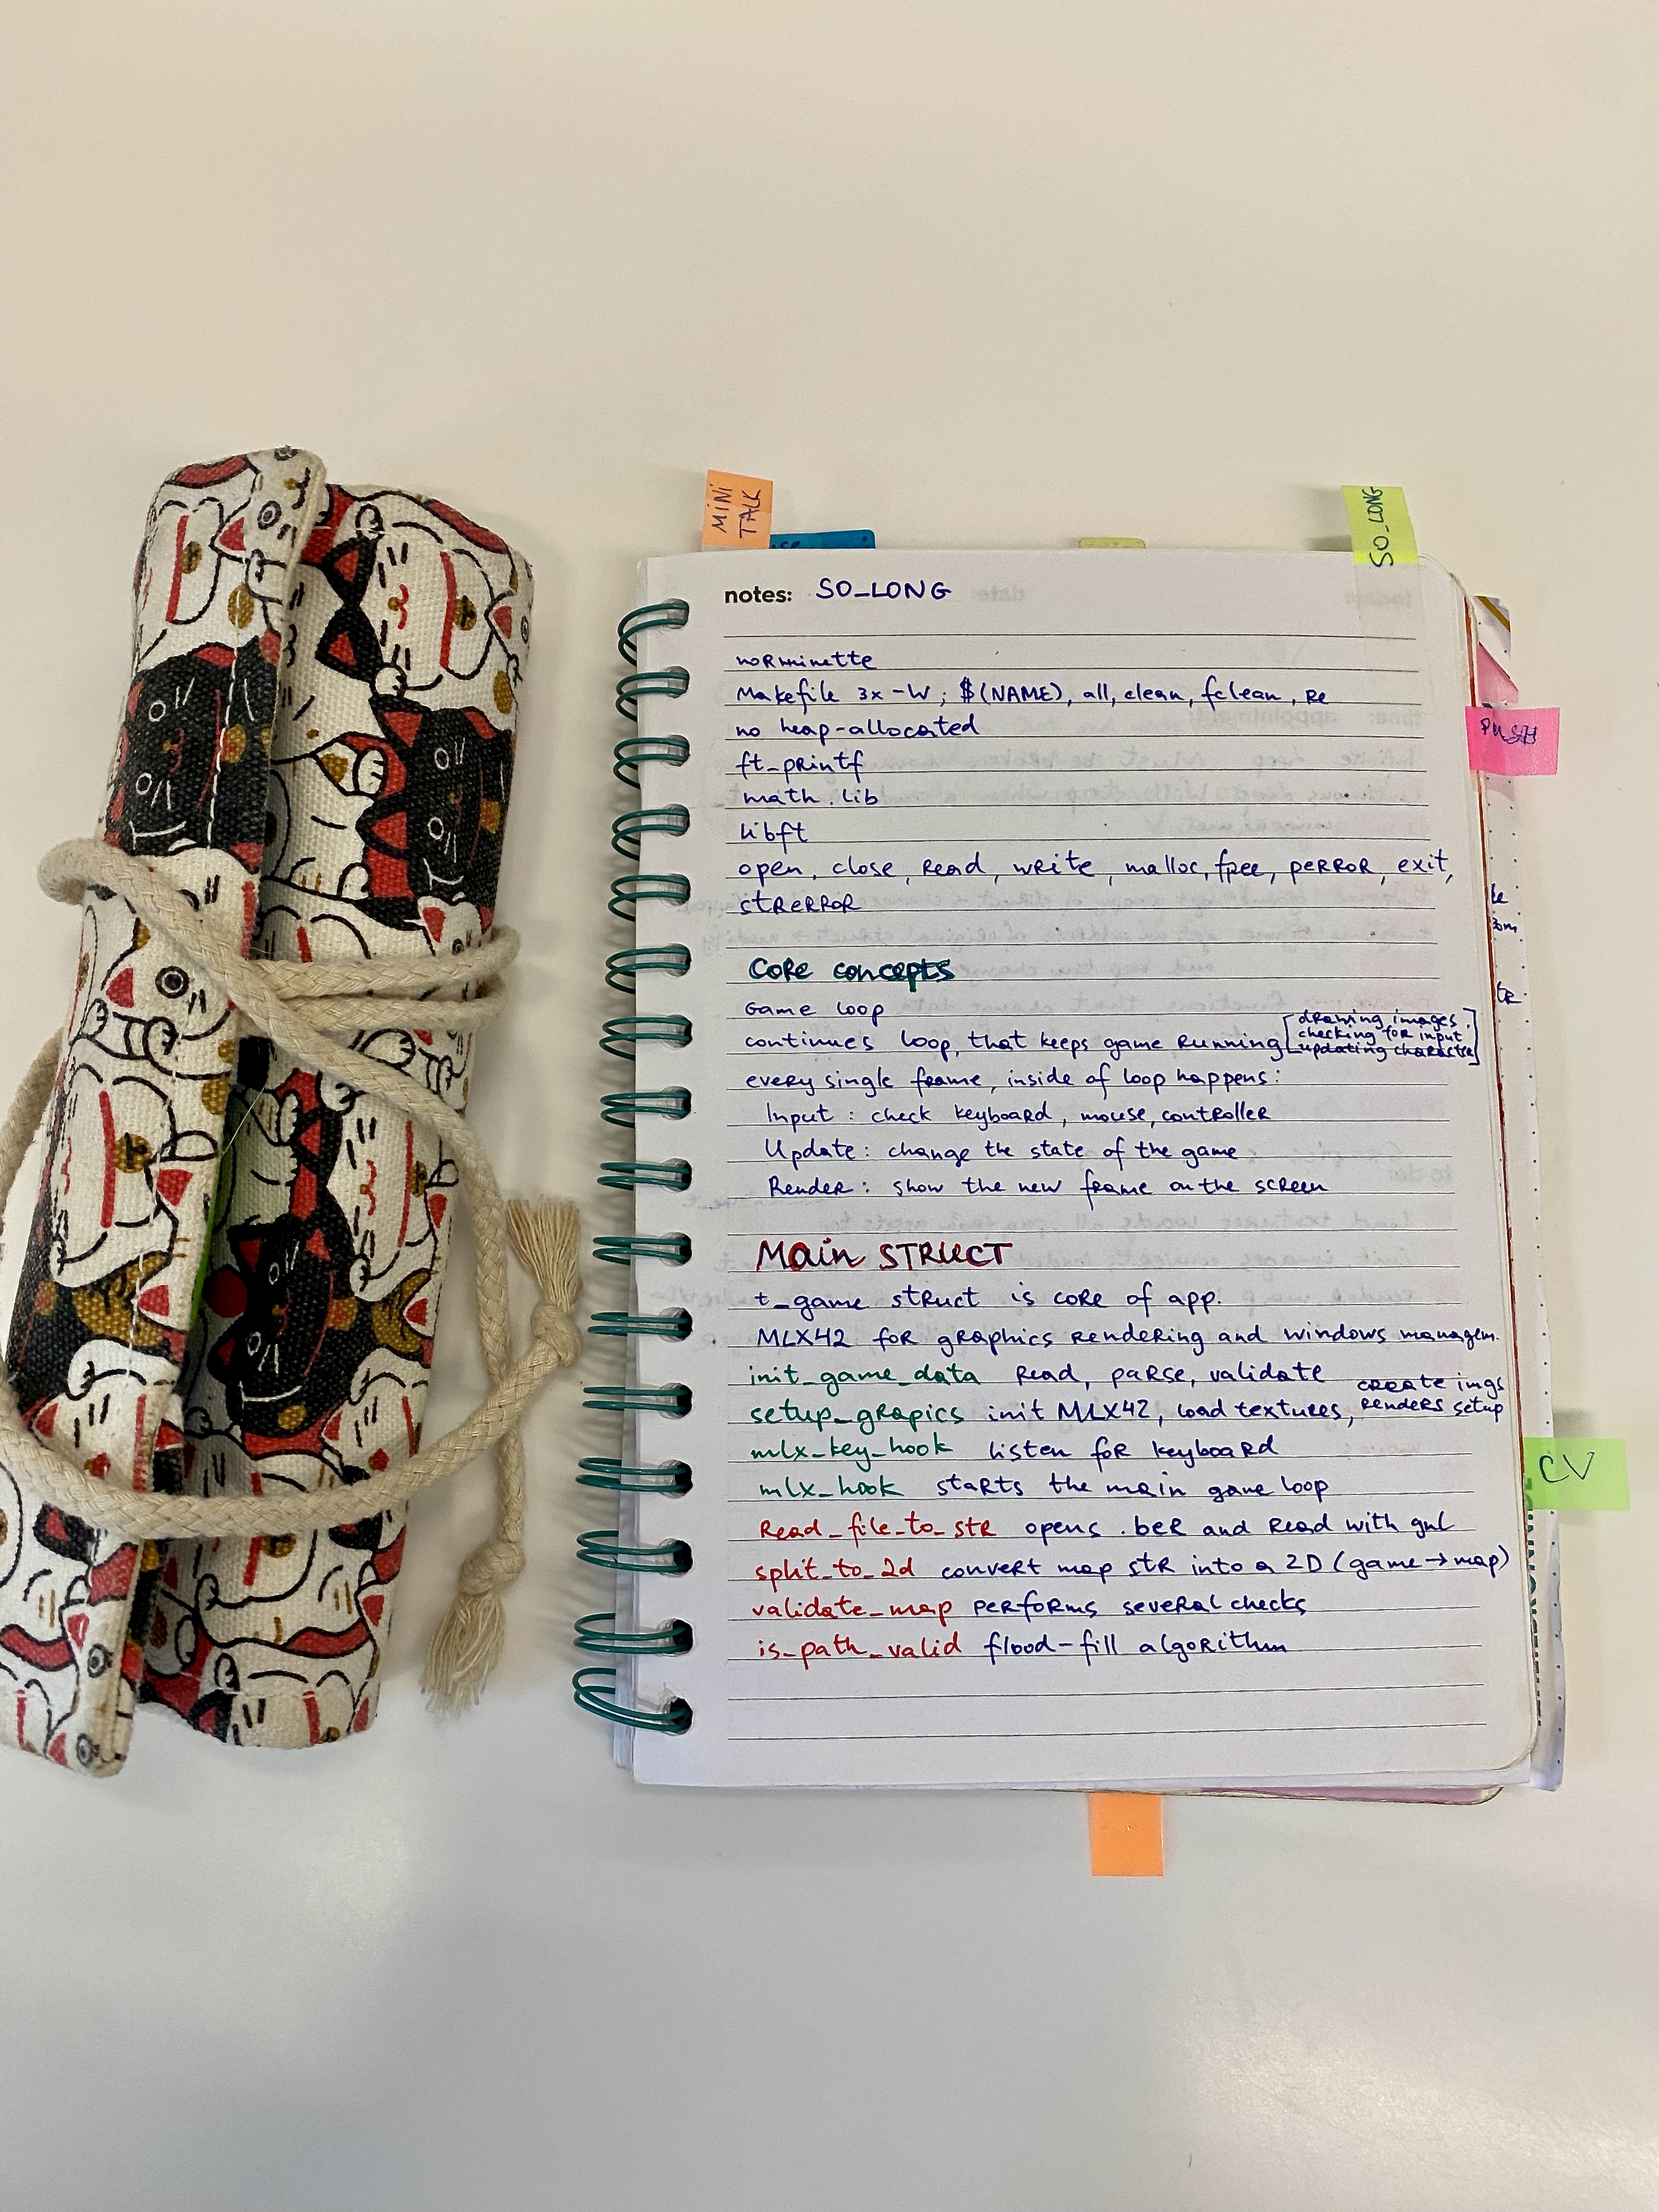 MINI
TALK
SO_LONG
notes: SO_LONG
norminette
Makefile 3x -W ; $(NAME), all, clean, fclean, re
no heap-allocated
ft_printf
math.lib
libft
open, close, read, write, malloc, free, perror, exit,
strerror
Core concepts
Game loop
continues loop, that keeps game running [drawing images,
checking for input
updating character]
every single frame, inside of loop happens:
Input: check keyboard, mouse, controller
Update: change the state of the game
Render: show the new frame on the screen
Main STRUCT
t_game struct is core of app.
MLX42 for graphics rendering and windows managem.
init_game_data read, parse, validate
setup_grapics init MLX42, load textures, create imgs
renders setup
mlx_key_hook listen for keyboard
mlx_hook starts the main game loop
read_file_to_str opens .ber and read with gnl
split_to_2d convert map str into a 2D (game→map)
validate_map performs several checks
is_path_valid flood-fill algorithm
PUSH
CV